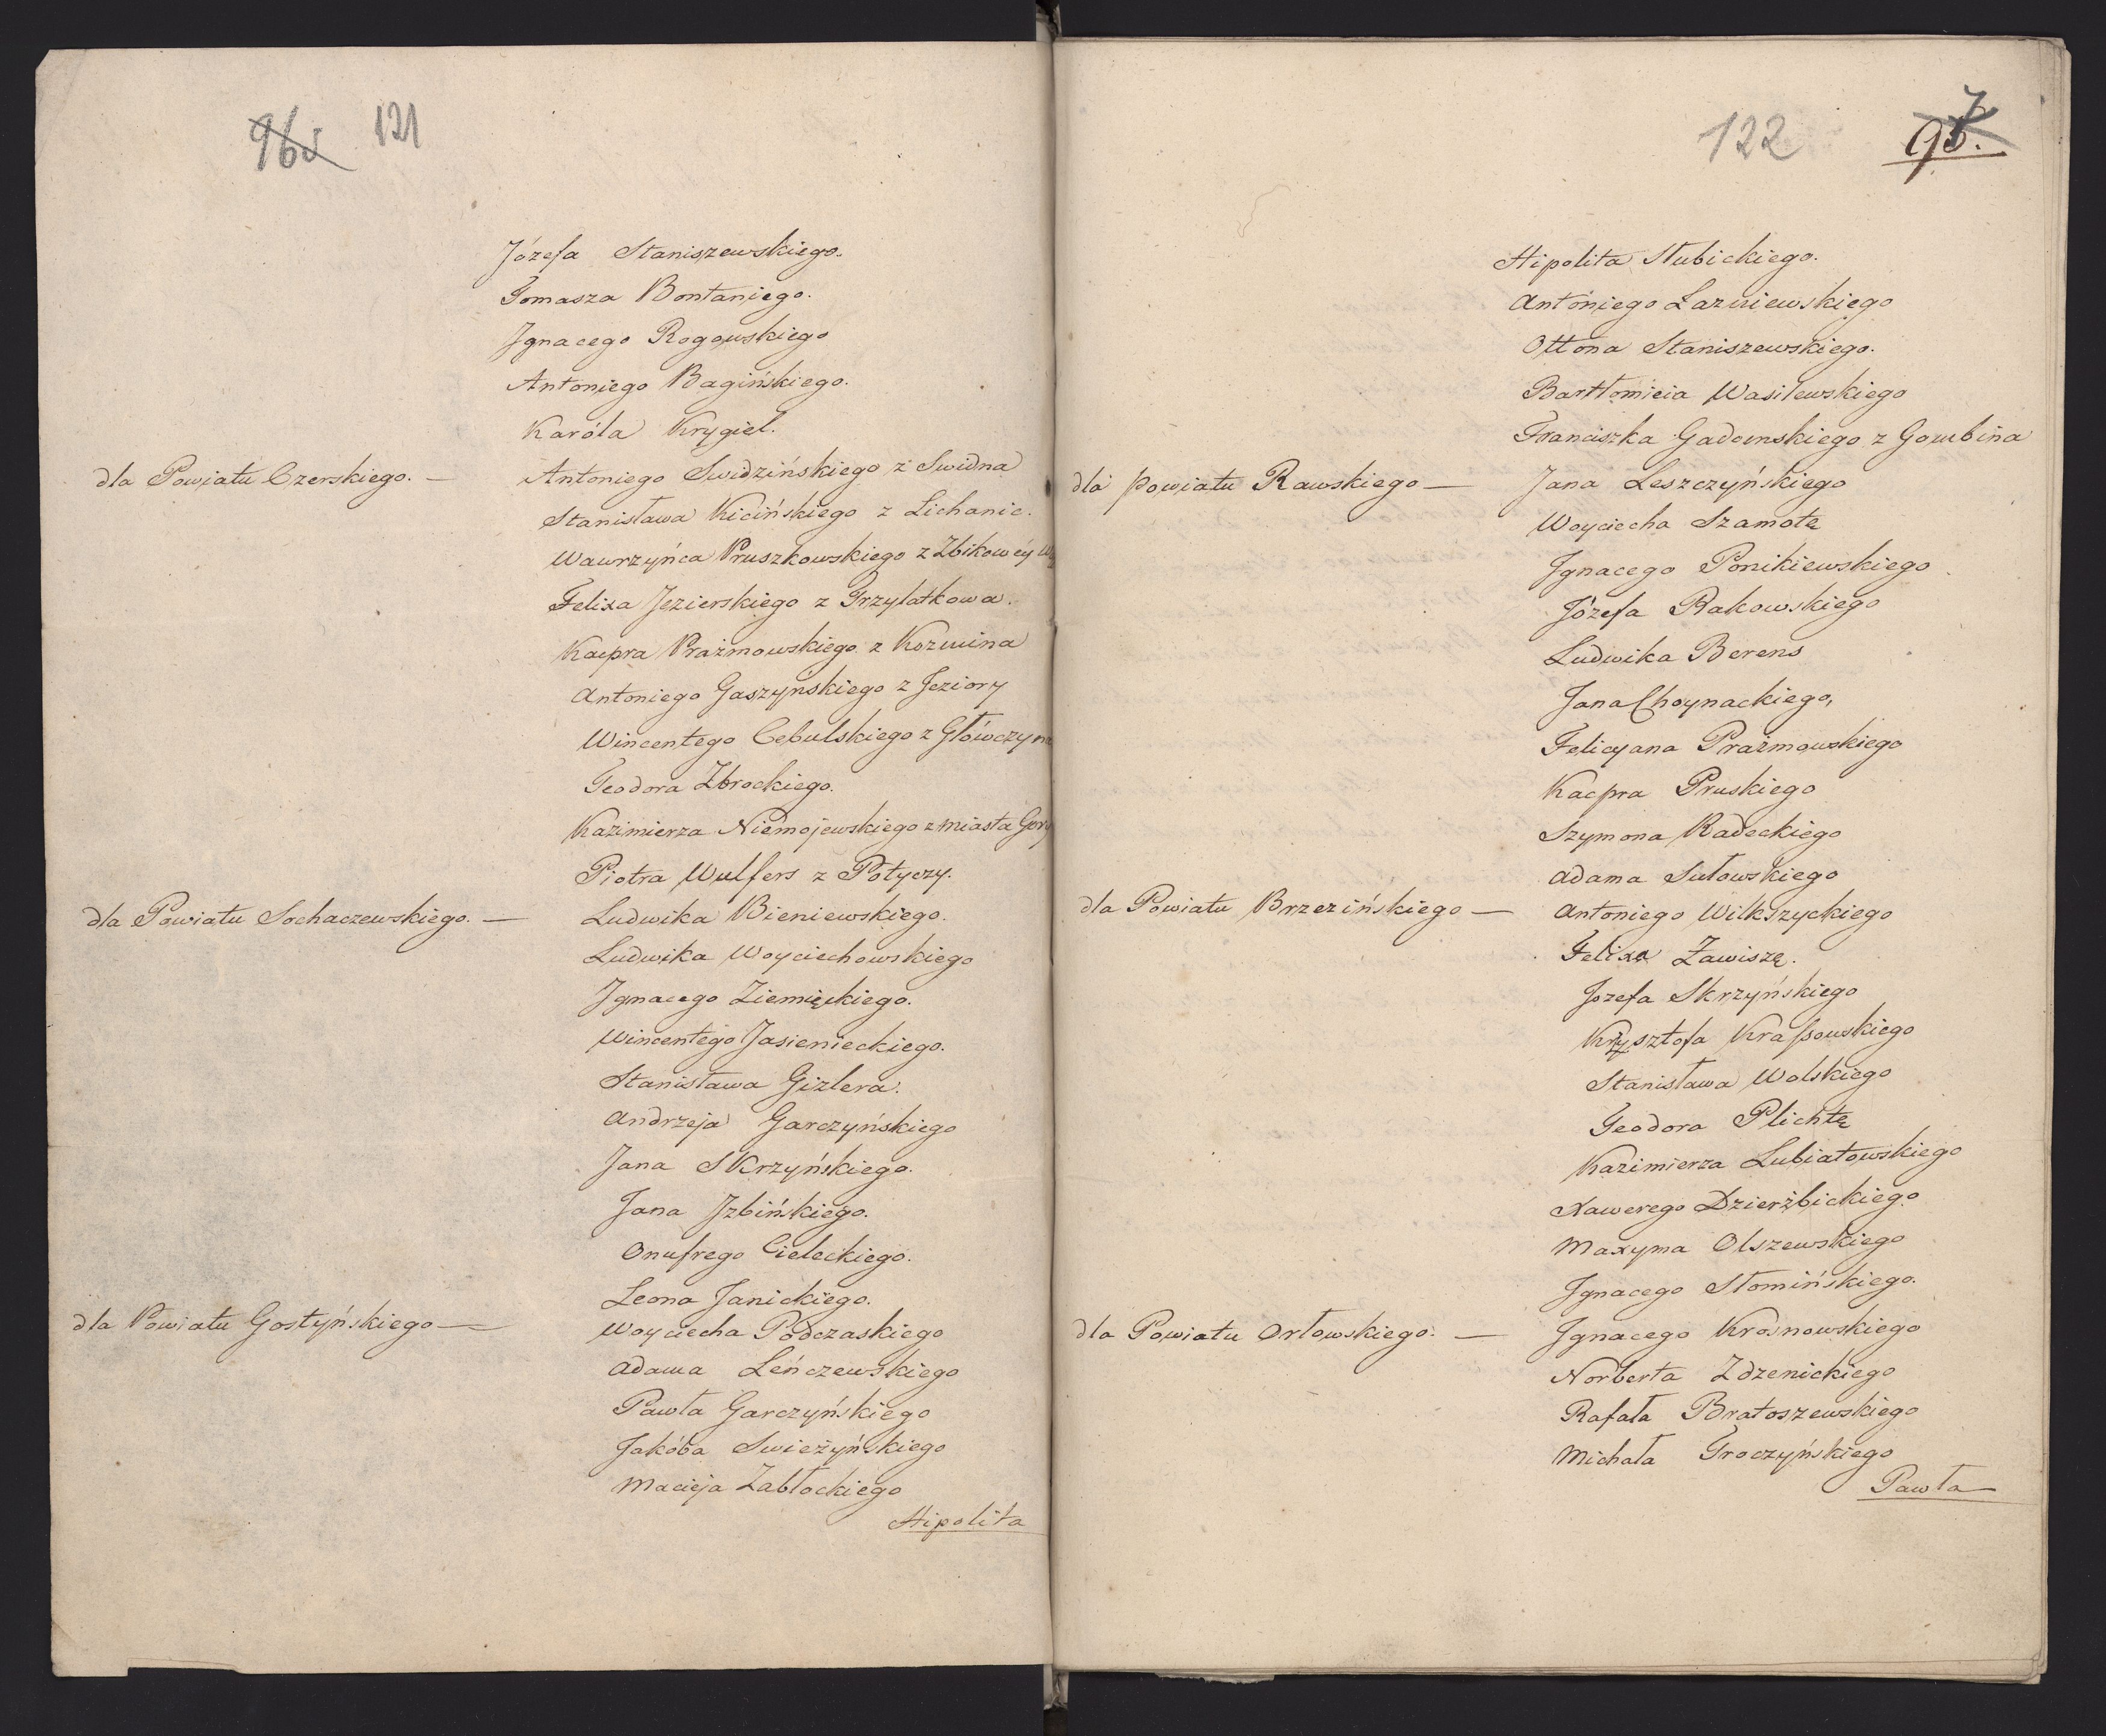 121
Józefa Staniszewskiego.
Tomasza Bontaniego.
Ignacego Rogowskiego
Antoniego Bagińskiego.
Karóla Krygiel.
dla Powiatu Czerskiego. — Antoniego Swidzińskiego z Swidna
Stanisława Kicińskiego z Lichanic.
Wawrzyńca Pruszkowskiego z Zbikowéy
Felixa Jezierskiego z Przylatkowa.
Kacpra Prażmowskiego z Kozmina
Antoniego Gaszyńskiego z Jeziory
Wincentego Cebulskiego z Główczyna
Teodora Zbrockiego.
Kazimierza Niemojewskiego z miasta Gory
Piotra Wulfers z Potyczy.
dla Powiatu Sochaczewskiego. — Ludwika Bieniewskiego.
Ludwika Woyciechowskiego
Ignacego Ziemięckiego.
Wincentego Jasienieckiego.
Stanisława Gizlera.
Andrzeja Garczyńskiego
Jana Skrzyńskiego.
Jana Izbińskiego.
Onufrego Cieleckiego.
Leona Janickiego.
dla Powiatu Gostyńskiego — Woyciecha Podczaskiego
Adama Leńczewskiego
Pawła Garczyńskiego
Jakóba Swieżyńskiego
Macieja Zabłockiego
Hipolita
122
Hipolita Słubickiego.
Antoniego Lazniewskiego
Ottona Staniszewskiego.
Bartłomieia Wasilewskiego
Franciszka Gadomskiego z
dla powiatu Rawskiego — Jana Leszczyńskiego
Woyciecha Szamotę
Ignacego Ponikiewskiego
Józefa Rakowskiego
Ludwika Berens
Jana Choynackiego,
Felicyana Prażmowskiego
Kacpra Pruskiego
Szymona Radeckiego
Adama Sułowskiego
dla Powiatu Brzezińskiego — Antoniego Wilkszyckiego
Felixa Zawiszę.
Jozefa Skrzyńskiego
Krzysztofa Krassowskiego
Stanisława Wolskiego
Teodora Plichtę
Kazimierza Lubiatowskiego
Xawerego Dzierżbickiego.
Maxyma Olszewskiego
Ignacego Słomińskiego.
dla Powiatu Orłowskiego. — Ignacego Krosnowskiego
Norberta Zdzenickiego
Rafała Bratoszewskiego
Michała Troczyńskiego
Pawła